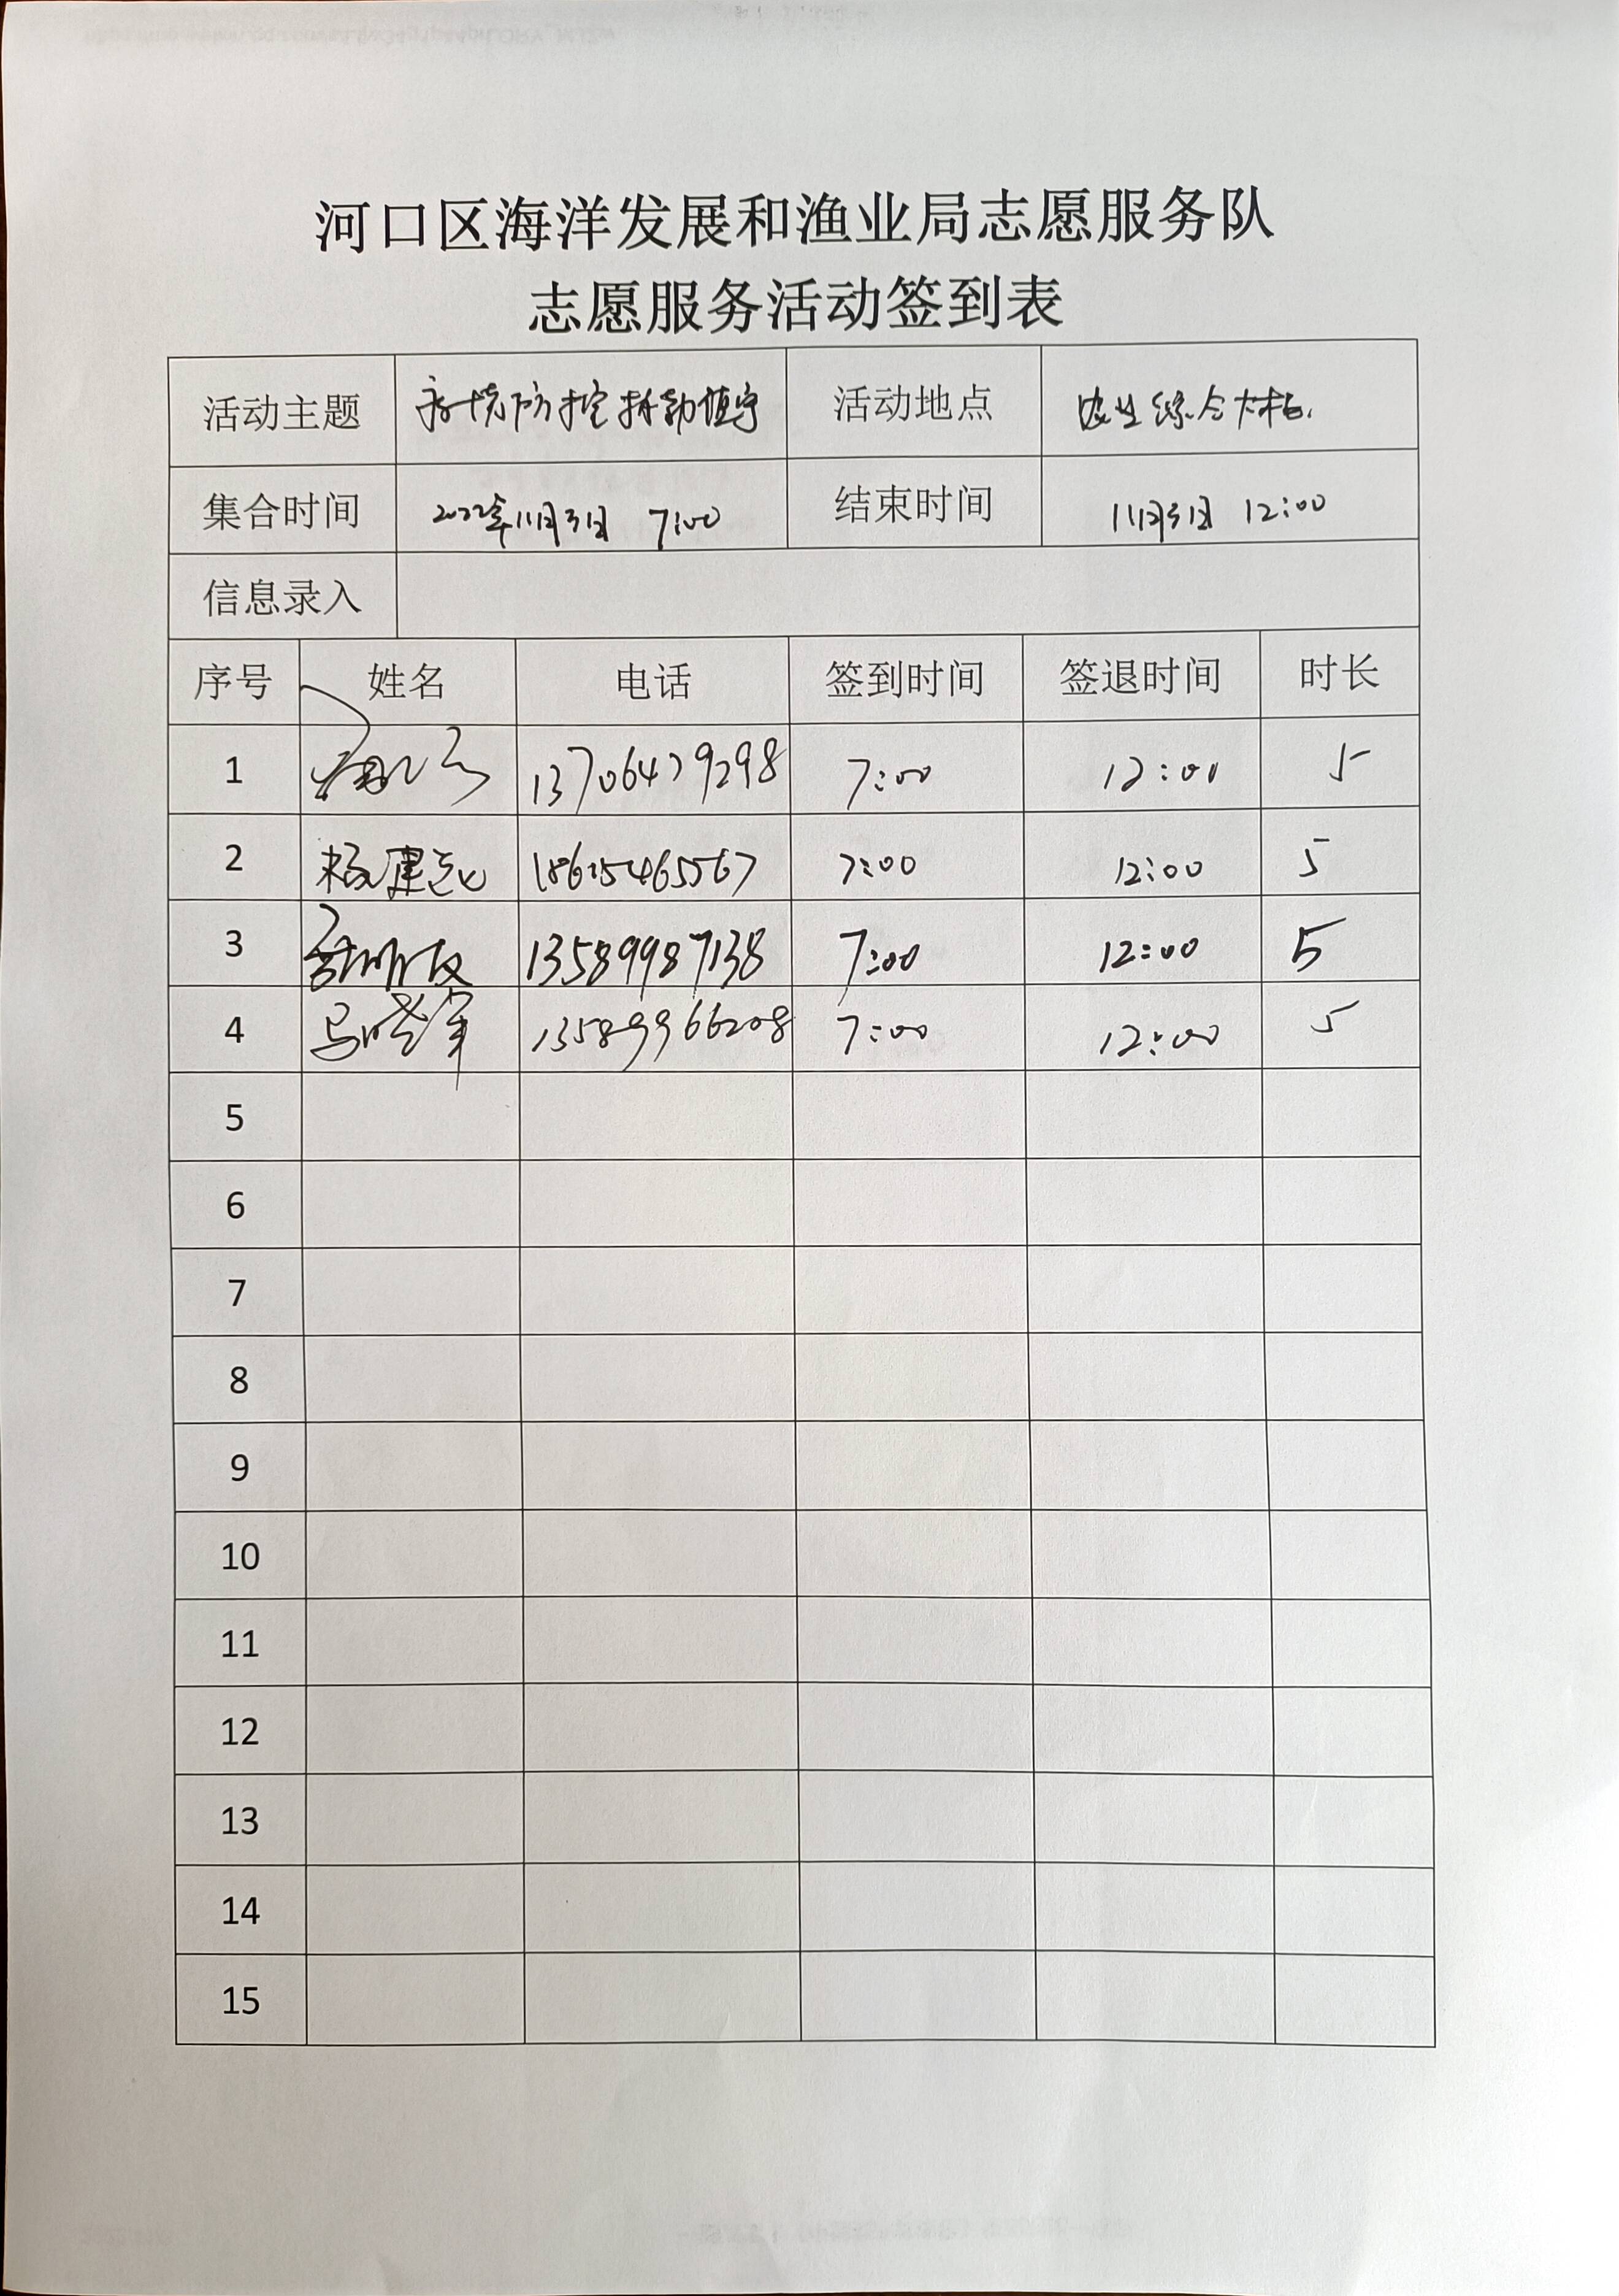 河口区海洋发展和渔业局志愿服务队
志愿服务活动签到表
活动主题 疫情防控执勤值守 活动地点 农业综合大楼
集合时间 2022年11月3日 7:00 结束时间 11月3日 12:00
信息录入
序号 姓名 电话 签到时间 签退时间 时长
1 13706479298 7:00 12:00 5
2 杨建 18615465567 7:00 12:00 5
3 13589987138 7:00 12:00 5
4 马晓军 13589966208 7:00 12:00 5
5
6
7
8
9
10
11
12
13
14
15